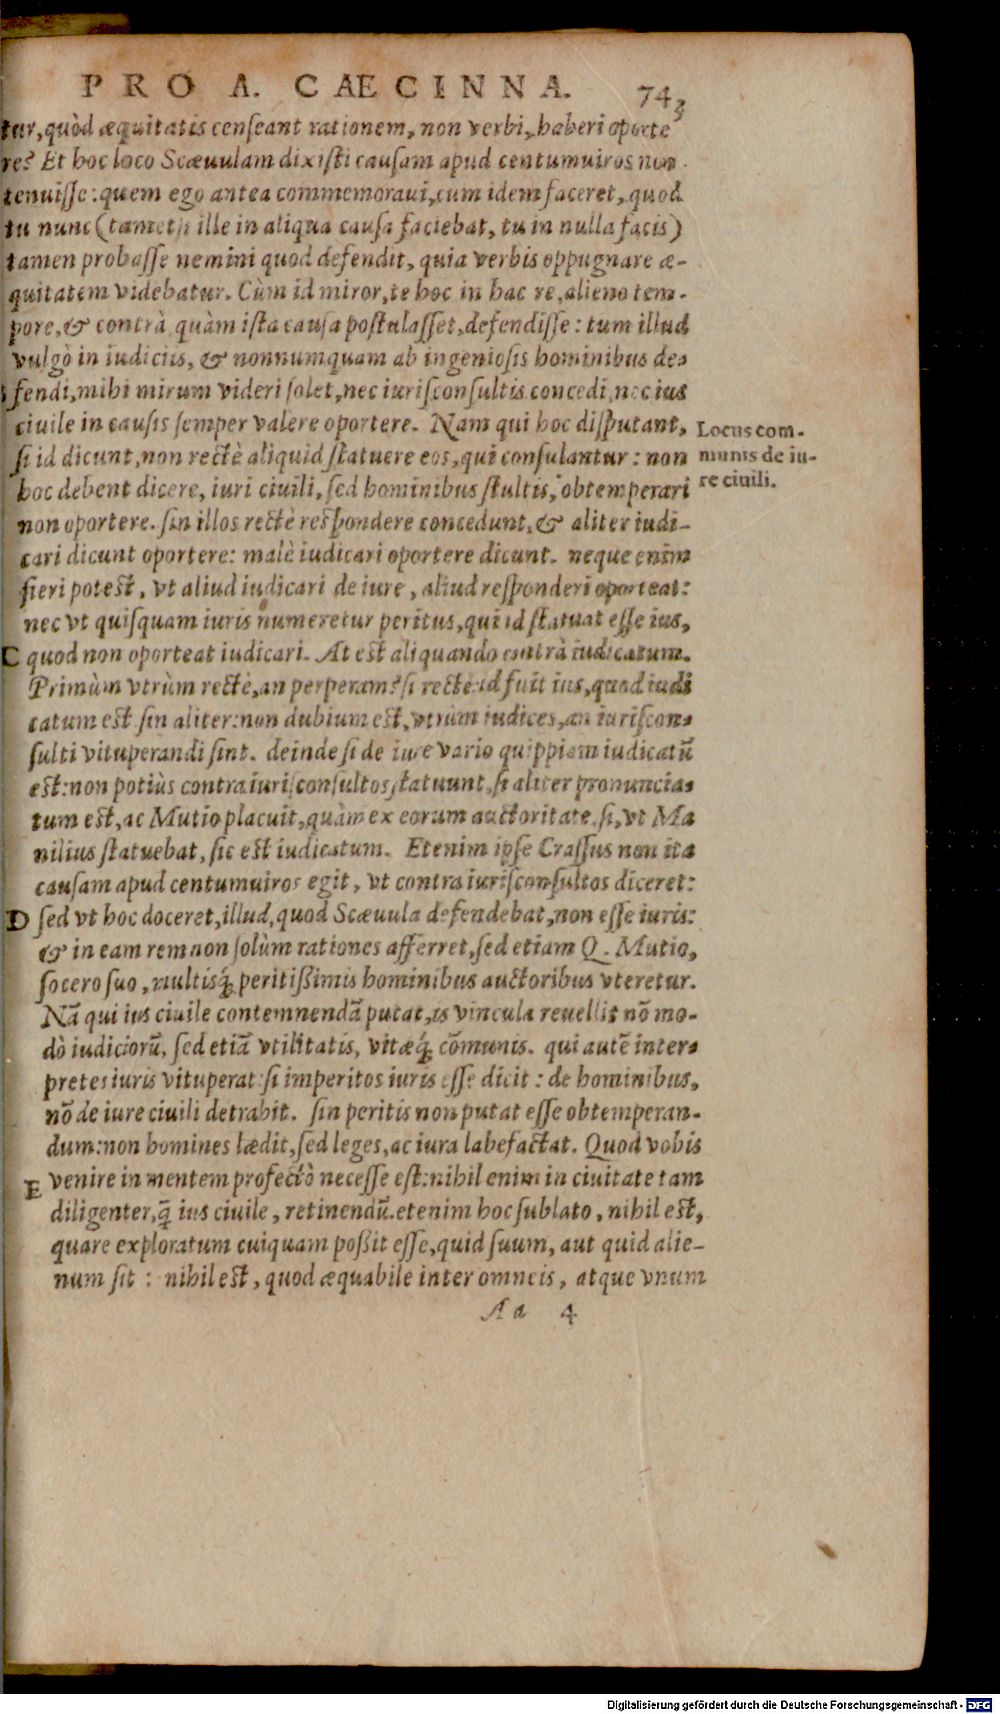 PRO A. CÆCINNA. 743
tur, quòd æquitatis censeant rationem, non verbi, haberi oporte
re? Et hoc loco Scæuulam dixisti causam apud centumuiros non
tenuisse: quem ego antea commemoraui, cum idem faceret, quod
tu nunc (tametsi ille in aliqua causa faciebat, tu in nulla facis)
tamen probasse nemini quod defendit, quia verbis oppugnare æ-
quitatem videbatur. Cùm id miror, te hoc in hac re, alieno tem-
pore, & contrà quàm ista causa postulasset, defendisse: tum illud
vulgò in iudiciis, & nonnumquam ab ingeniosis hominibus de-
fendi, mihi mirum videri solet, nec iurisconsultis concedi, nec ius
ciuile in causis semper valere oportere. Nam qui hoc disputant,
si id dicunt, non rectè aliquid statuere eos, qui consulantur: non
hoc debent dicere, iuri ciuili, sed hominibus stultis, obtemperari
non oportere. sin illos rectè respondere concedunt, & aliter iudi-
cari dicunt oportere: malè iudicari oportere dicunt. neque enim
fieri potest, vt aliud iudicari de iure, aliud responderi oporteat:
nec vt quisquam iuris numeretur peritus, qui id statuat esse ius,
C quod non oporteat iudicari. At est aliquando contrà iudicatum.
Primùm vtrùm rectè, an perperam? si rectè: id fuit ius, quod iudi
catum est. sin aliter: non dubium est, vtrùm iudices, an iuriscon-
sulti vituperandi sint. deinde si de iure vario quippiam iudicatũ
est: non potiùs contra iurisconsultos statuunt, si aliter pronuncia-
tum est, ac Mutio placuit, quàm ex eorum auctoritate, si, vt Ma
nilius statuebat, sic est iudicatum. Etenim ipse Crassus non ita
causam apud centumuiros egit, vt contra iurisconsultos diceret:
D sed vt hoc doceret, illud, quod Scæuula defendebat, non esse iuris:
& in eam rem non solùm rationes afferret, sed etiam Q. Mutio,
socero suo, multisq́; peritißimis hominibus auctoribus vteretur.
Nã qui ius ciuile contemnendã putat, is vincula reuellit nõ mo-
dò iudiciorũ, sed etiã vtilitatis, vitæq́; cõmunis. qui autẽ inter-
pretes iuris vituperat: si imperitos iuris esse dicit: de hominibus,
nõ de iure ciuili detrahit. sin peritis non putat esse obtemperan-
dum: non homines lædit, sed leges, ac iura labefactat. Quod vobis
E venire in mentem profectò necesse est: nihil enim in ciuitate tam
diligenter, q̃ ius ciuile, retinendũ. etenim hoc sublato, nihil est,
quare exploratum cuiquam poßit esse, quid suum, aut quid alie-
num sit: nihil est, quod æquabile inter omneis, atque vnum
Aa 4
Locus com-
munis de iu-
re ciuili.
Digitalisierung gefördert durch die Deutsche Forschungsgemeinschaft - DFG